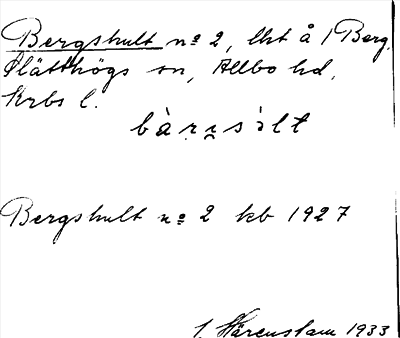 Bergshult nº 2, lht å 1 Berg,
Slätthögs sn, Allbo hd,
Krbs l.
bàrısılt
Bergshult nº 2 kb 1927
1. Härenstam 1933